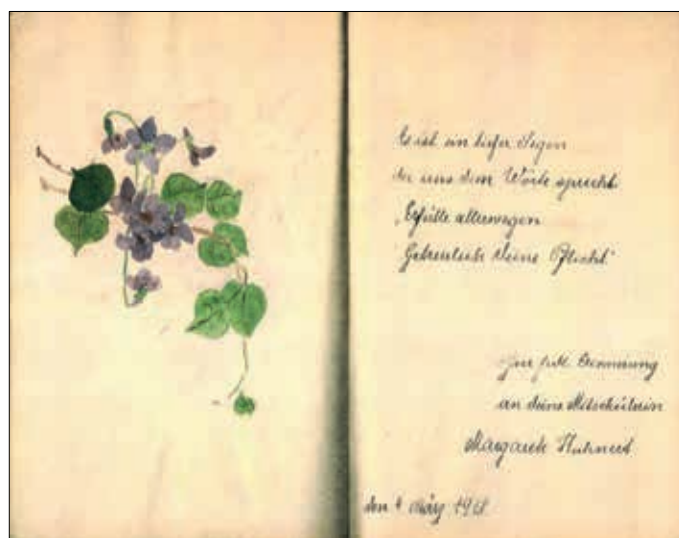 Es ist ein tiefer Segen
der aus dem Worte spricht.
„Erfülle allerwegen
Getreulich deine Pflicht“
Zur frdl. Erinnerung
an deine Mitschülerin
Margarete
den 4 März